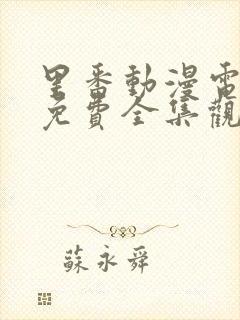 里番動漫電
免費全集觀
蘇永舜